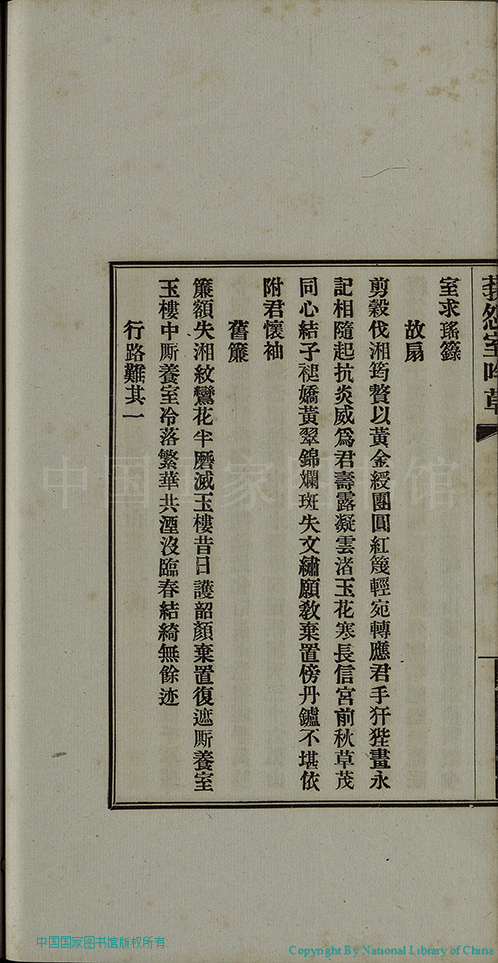 室求瑤籙
故扇
剪縠伐湘筠贅以黃金綬團圓紅篾輕宛轉應君手犴狴畫永
記相隨起抗炎威爲君壽露凝雲渚玉花寒長信宮前秋草茂
同心結子褪嬌黃翠錦斕斑失文繡願敎棄置傍丹鑪不堪依
附君懷袖
舊簾
簾額失湘紋鸞花半磨滅玉樓昔日護韶顏棄置復遮厮養室
玉樓中厮養室冷落繁華共湮沒臨春結綺無餘迹
行路難其一
中国国家图书馆
中国国家图书馆版权所有
Copyright By National Library of China